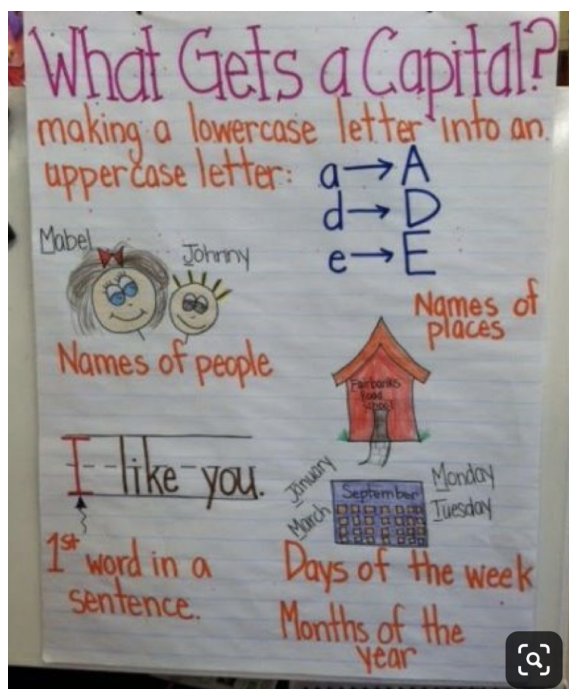 What Gets a Capital?
making a lowercase letter into an
uppercase letter:
a → A
d → D
e → E
Mabel
Johnny
Names of people
Names of
places
Fairbanks
Road
School
I like you.
1st word in a
sentence.
January
March
September
Monday
Tuesday
Days of the week
Months of the
year